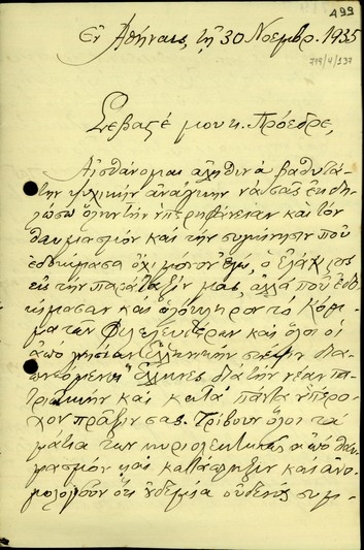 499
Ἐν Ἀθήναις, τῇ 30 Νοεμβρ. 1935
719/4/237
Σεβαστέ μου κ. Πρόεδρε,
Αἰσθάνομαι ἀληθινὰ βαθυτά-
την ψυχικὴν ἀνάγκην νὰ σᾶς ἐκδη-
λώσω ὅλην τὴν ὑπερηφάνειαν καὶ τὸν
θαυμασμὸν καὶ τὴν συγκίνησιν ποὺ
ἐδοκίμασα ὄχι μόνον ἐγώ, ὁ ἐλάχιστος
εἰς τὴν παράταξίν μας, ἀλλὰ ποὺ ἐδο-
κίμασαν καὶ ὁλόκληρον τὸ Κόμ-
μα τῶν Φιλελευθέρων καὶ ὅλοι οἱ
ἀπὸ γνησίαν Ἑλληνικὴν σκέψιν δια-
πνεόμενοι Ἕλληνες διὰ τὴν νέαν πα-
τριωτικὴν καὶ κατὰ πάντα ὑπέρο-
χον πρᾶξίν σας. Τρίβουν ὅλοι τὰ
μάτια των κυριολεκτικῶς ἀπὸ θαυ-
μασμὸν καὶ κατάπληξιν καὶ ἀνο-
μολογοῦν ὅτι οὐδεμία οὐδενὸς